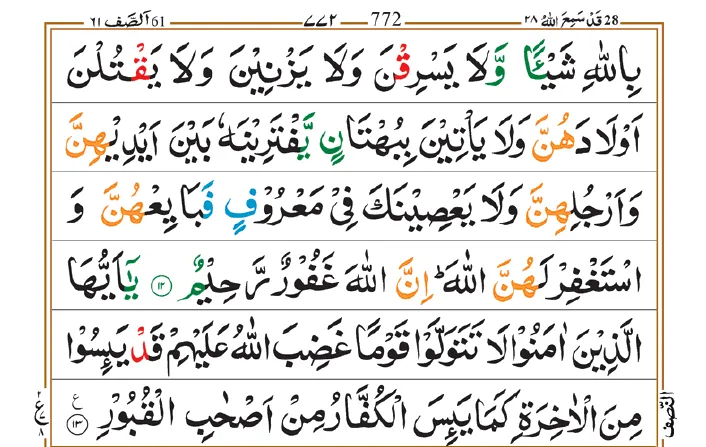 28 قَدْ سَمِعَ اللّٰهُ ٢٨
772 ٧٧٢
61 اَلصَّف ٦١
بِاللّٰهِ شَيْـًٔا وَّلَا يَسْرِقْنَ وَلَا يَزْنِيْنَ وَلَا يَقْتُلْنَ
اَوْلَادَهُنَّ وَلَا يَاْتِيْنَ بِبُهْتَانٍ يَّفْتَرِيْنَهٗ بَيْنَ اَيْدِيْهِنَّ
وَاَرْجُلِهِنَّ وَلَا يَعْصِيْنَكَ فِيْ مَعْرُوْفٍ فَبَايِعْهُنَّ وَ
اسْتَغْفِرْ لَهُنَّ اللّٰهَ ؕ اِنَّ اللّٰهَ غَفُوْرٌ رَّحِيْمٌ ۝۱۲ يٰۤاَيُّهَا
الَّذِيْنَ اٰمَنُوْا لَا تَتَوَلَّوْا قَوْمًا غَضِبَ اللّٰهُ عَلَيْهِمْ قَدْ يَىِٕسُوْا
مِنَ الْاٰخِرَةِ كَمَا يَىِٕسَ الْكُفَّارُ مِنْ اَصْحٰبِ الْقُبُوْرِ ۝۱۳ ع
النِّصْف
٢ ع ٨